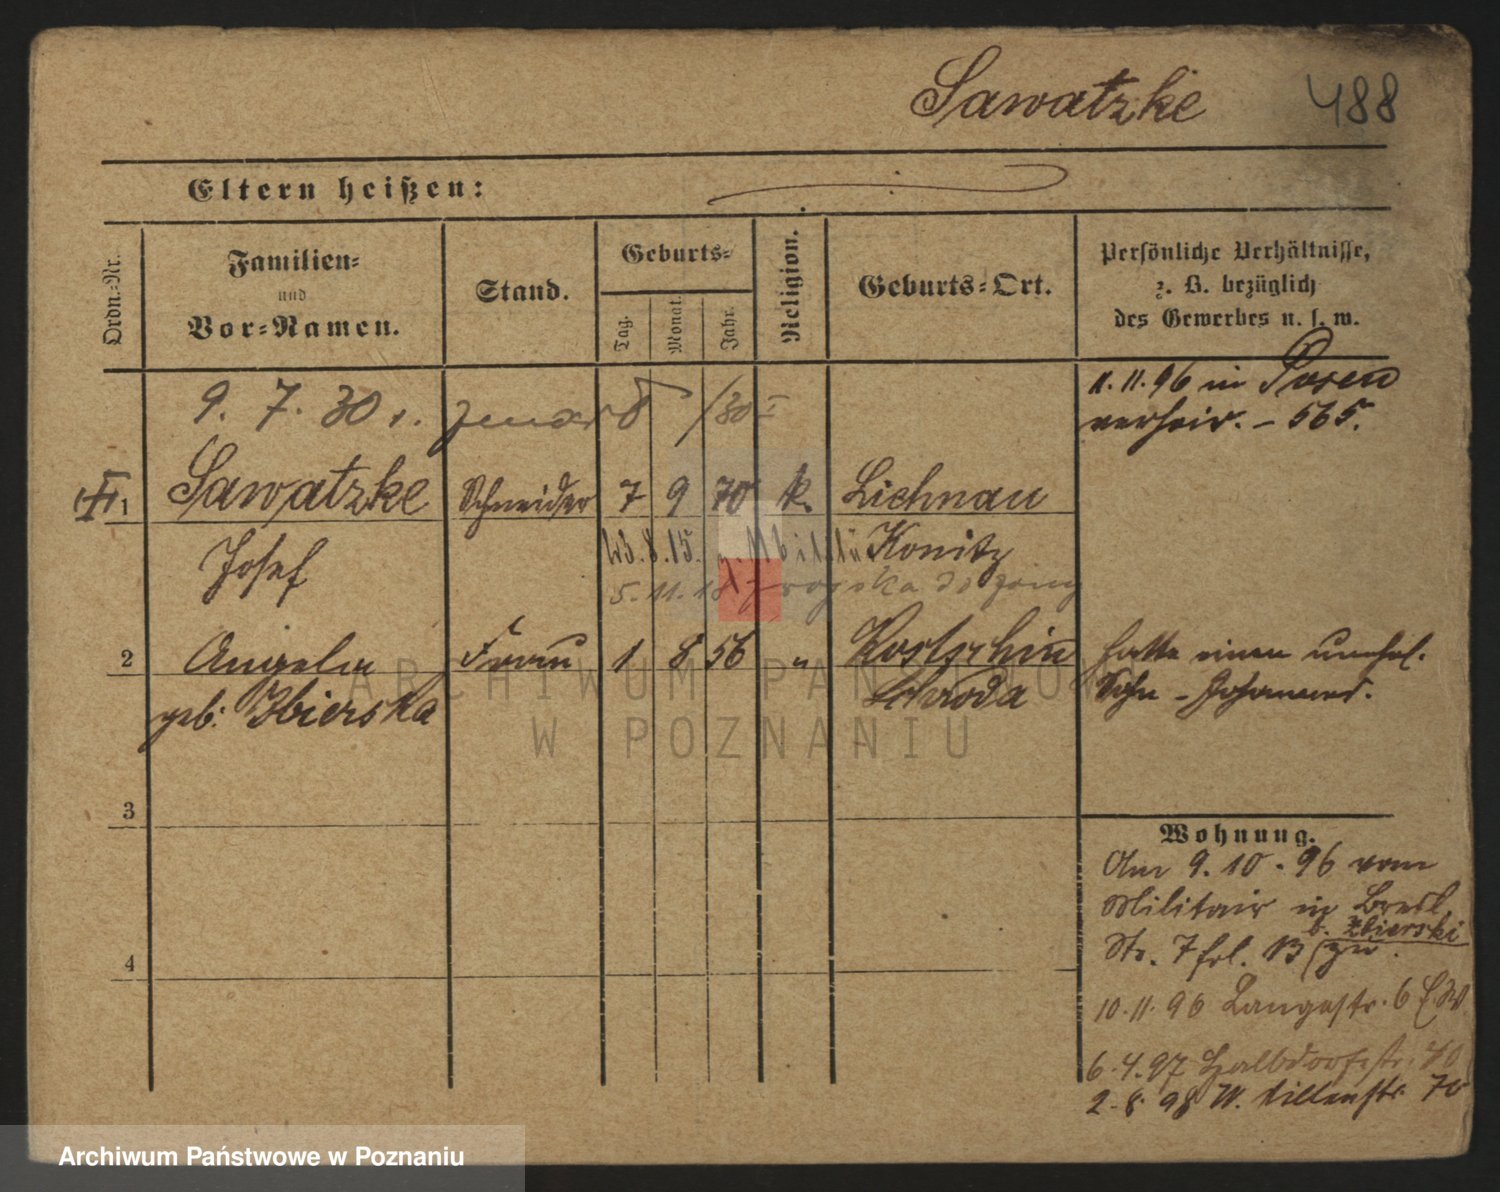 Sawatzke 488
Eltern heißen:
Ordn.-Nr.
Familien-
und
Vor-Namen.
Stand.
Geburts-
Tag.
Monat.
Jahr.
Religion.
Geburts-Ort.
Persönliche Verhältnisse,
z. B. bezüglich
des Gewerbes u. s. w.
9. 7. 30
11.11.96 in Posen
verheir. – 565.
1 Sawatzke Schneider 7 9 70 k. Lichnau
Josef Konitz
5.11.18
2 Angela Frau 1 8 56 " Kostschin
geb. Zbierska Schroda
hatte einen unehel.
Sohn – Johannes.
3
4
Wohnung.
Am 9.10.96 vom
Militair in Bresl.
b. Zbierski
Str. 7 zu
10.11.96 Langestr. 6
6.4.97 Halbdorfstr.
2.8.98
ARCHIWUM PAŃSTWOWE
W POZNANIU
Archiwum Państwowe w Poznaniu